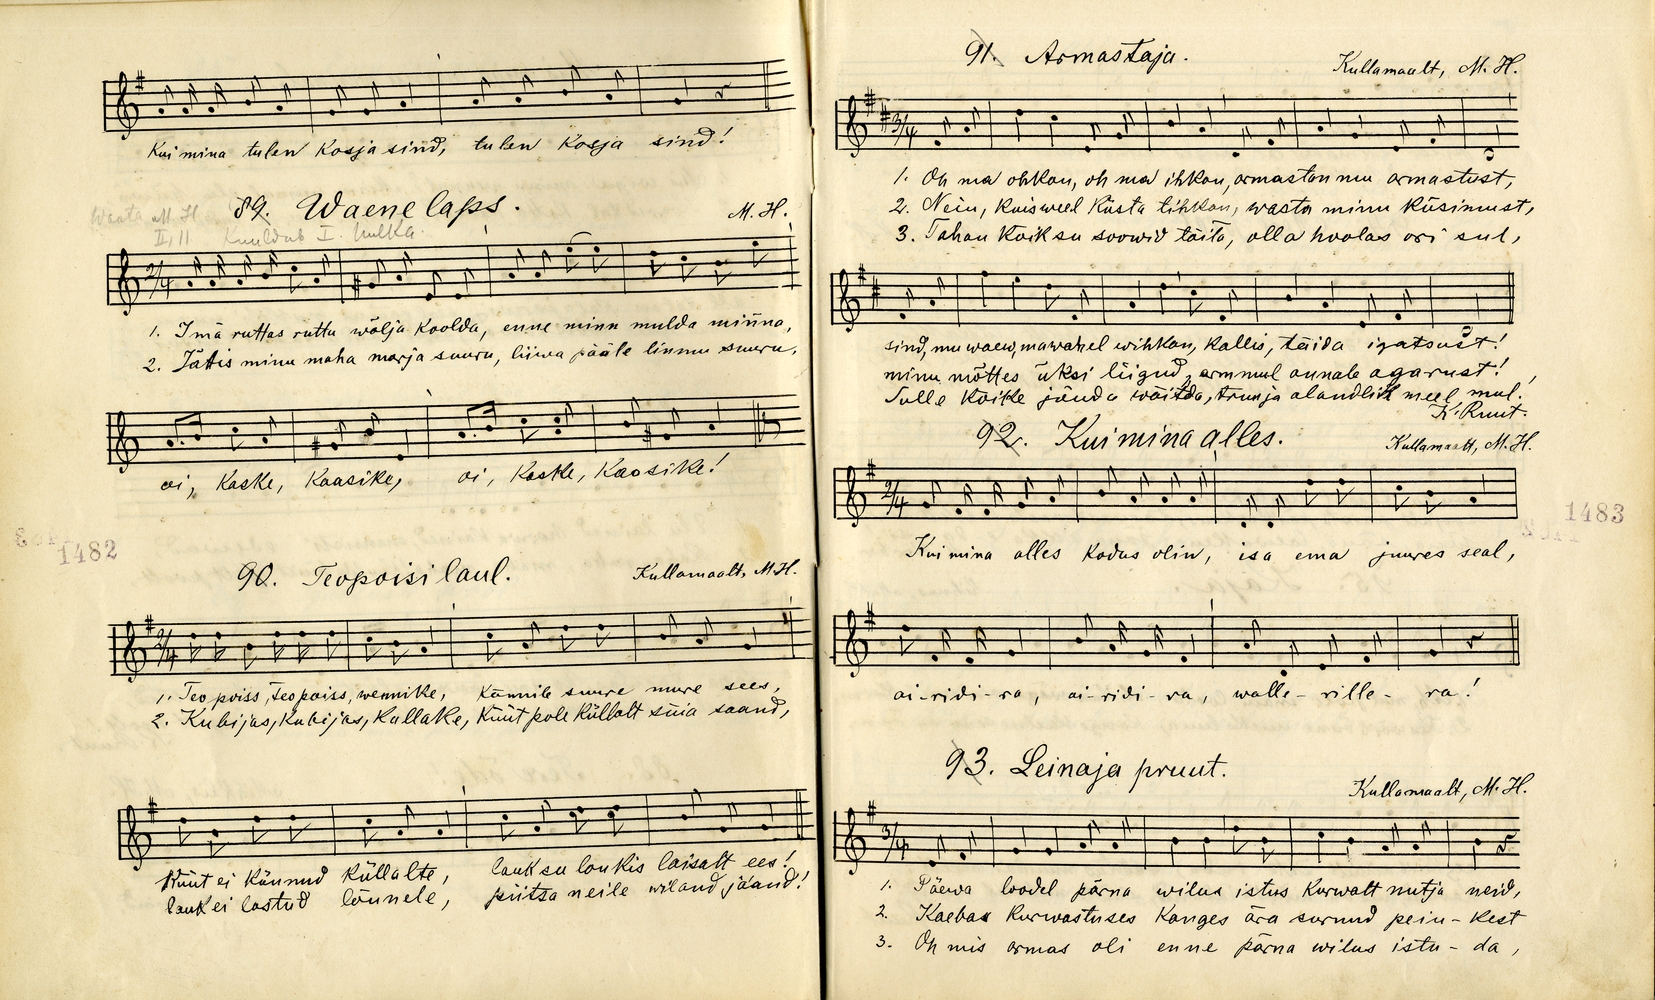 Kui mina tulen kosja sind, tulen kosja sind!
89. Waene laps.
M. H.
Waata M. H.
II, 11 Kuuldub I. hulka.
2/4
1. Imä ruttas ruttu wälja koolda, enne minu mulda minna,
2. Jättis minu maha marja suuru, liiwa pääle linnu suuru,
oi, kaske, kaasike, oi, kaske, kaasike!
1482
90. Teopoisi laul.
Kullamaalt, M. H.
2/4
1. Teo poiss, teo poiss, wennike, künnile suure mure sees,
2. Kubijas, kubijas, kullake, küüt pole küllalt süia saand,
Küüt ei künnud küllalte, lauk su laukis laisalt ees!
lauk ei lastud lõunele, piitsa neile wiland jäand!
91. Armastaja.
Kullamaalt, M. H.
3/4
1. Oh ma ohkan, oh ma ihkan, armastan mu armastust,
2. Neiu, kuis weel küsta tihkan, wasta minu küsimust,
3. Tahan kõik su soowid täita, olla hoolas ori sul,
sind, mu waew, ma wahel wihkan, kallis, täida igatsust!
minu mõttes üksi liigud, arm mul annab agarust!
Sulle kõike jõuda wäitda, truu ja alandlik meel mul!
K. Ruut.
92. Kui mina alles.
Kullamaalt, M. H.
2/4
Kui mina alles kodus olin, isa ema juures seal,
1483
ai-ridi-ra, ai-ridi-ra, walle-rille-ra!
93. Leinaja pruut.
Kullamaalt, M. H.
3/4
1. Päewa loodel pärna wilus istus kurwalt nutja neid,
2. Kaebas kurwastuses kanges ära surnud peiu-kest
3. Oh mis armas oli enne pärna wilus istu-da,